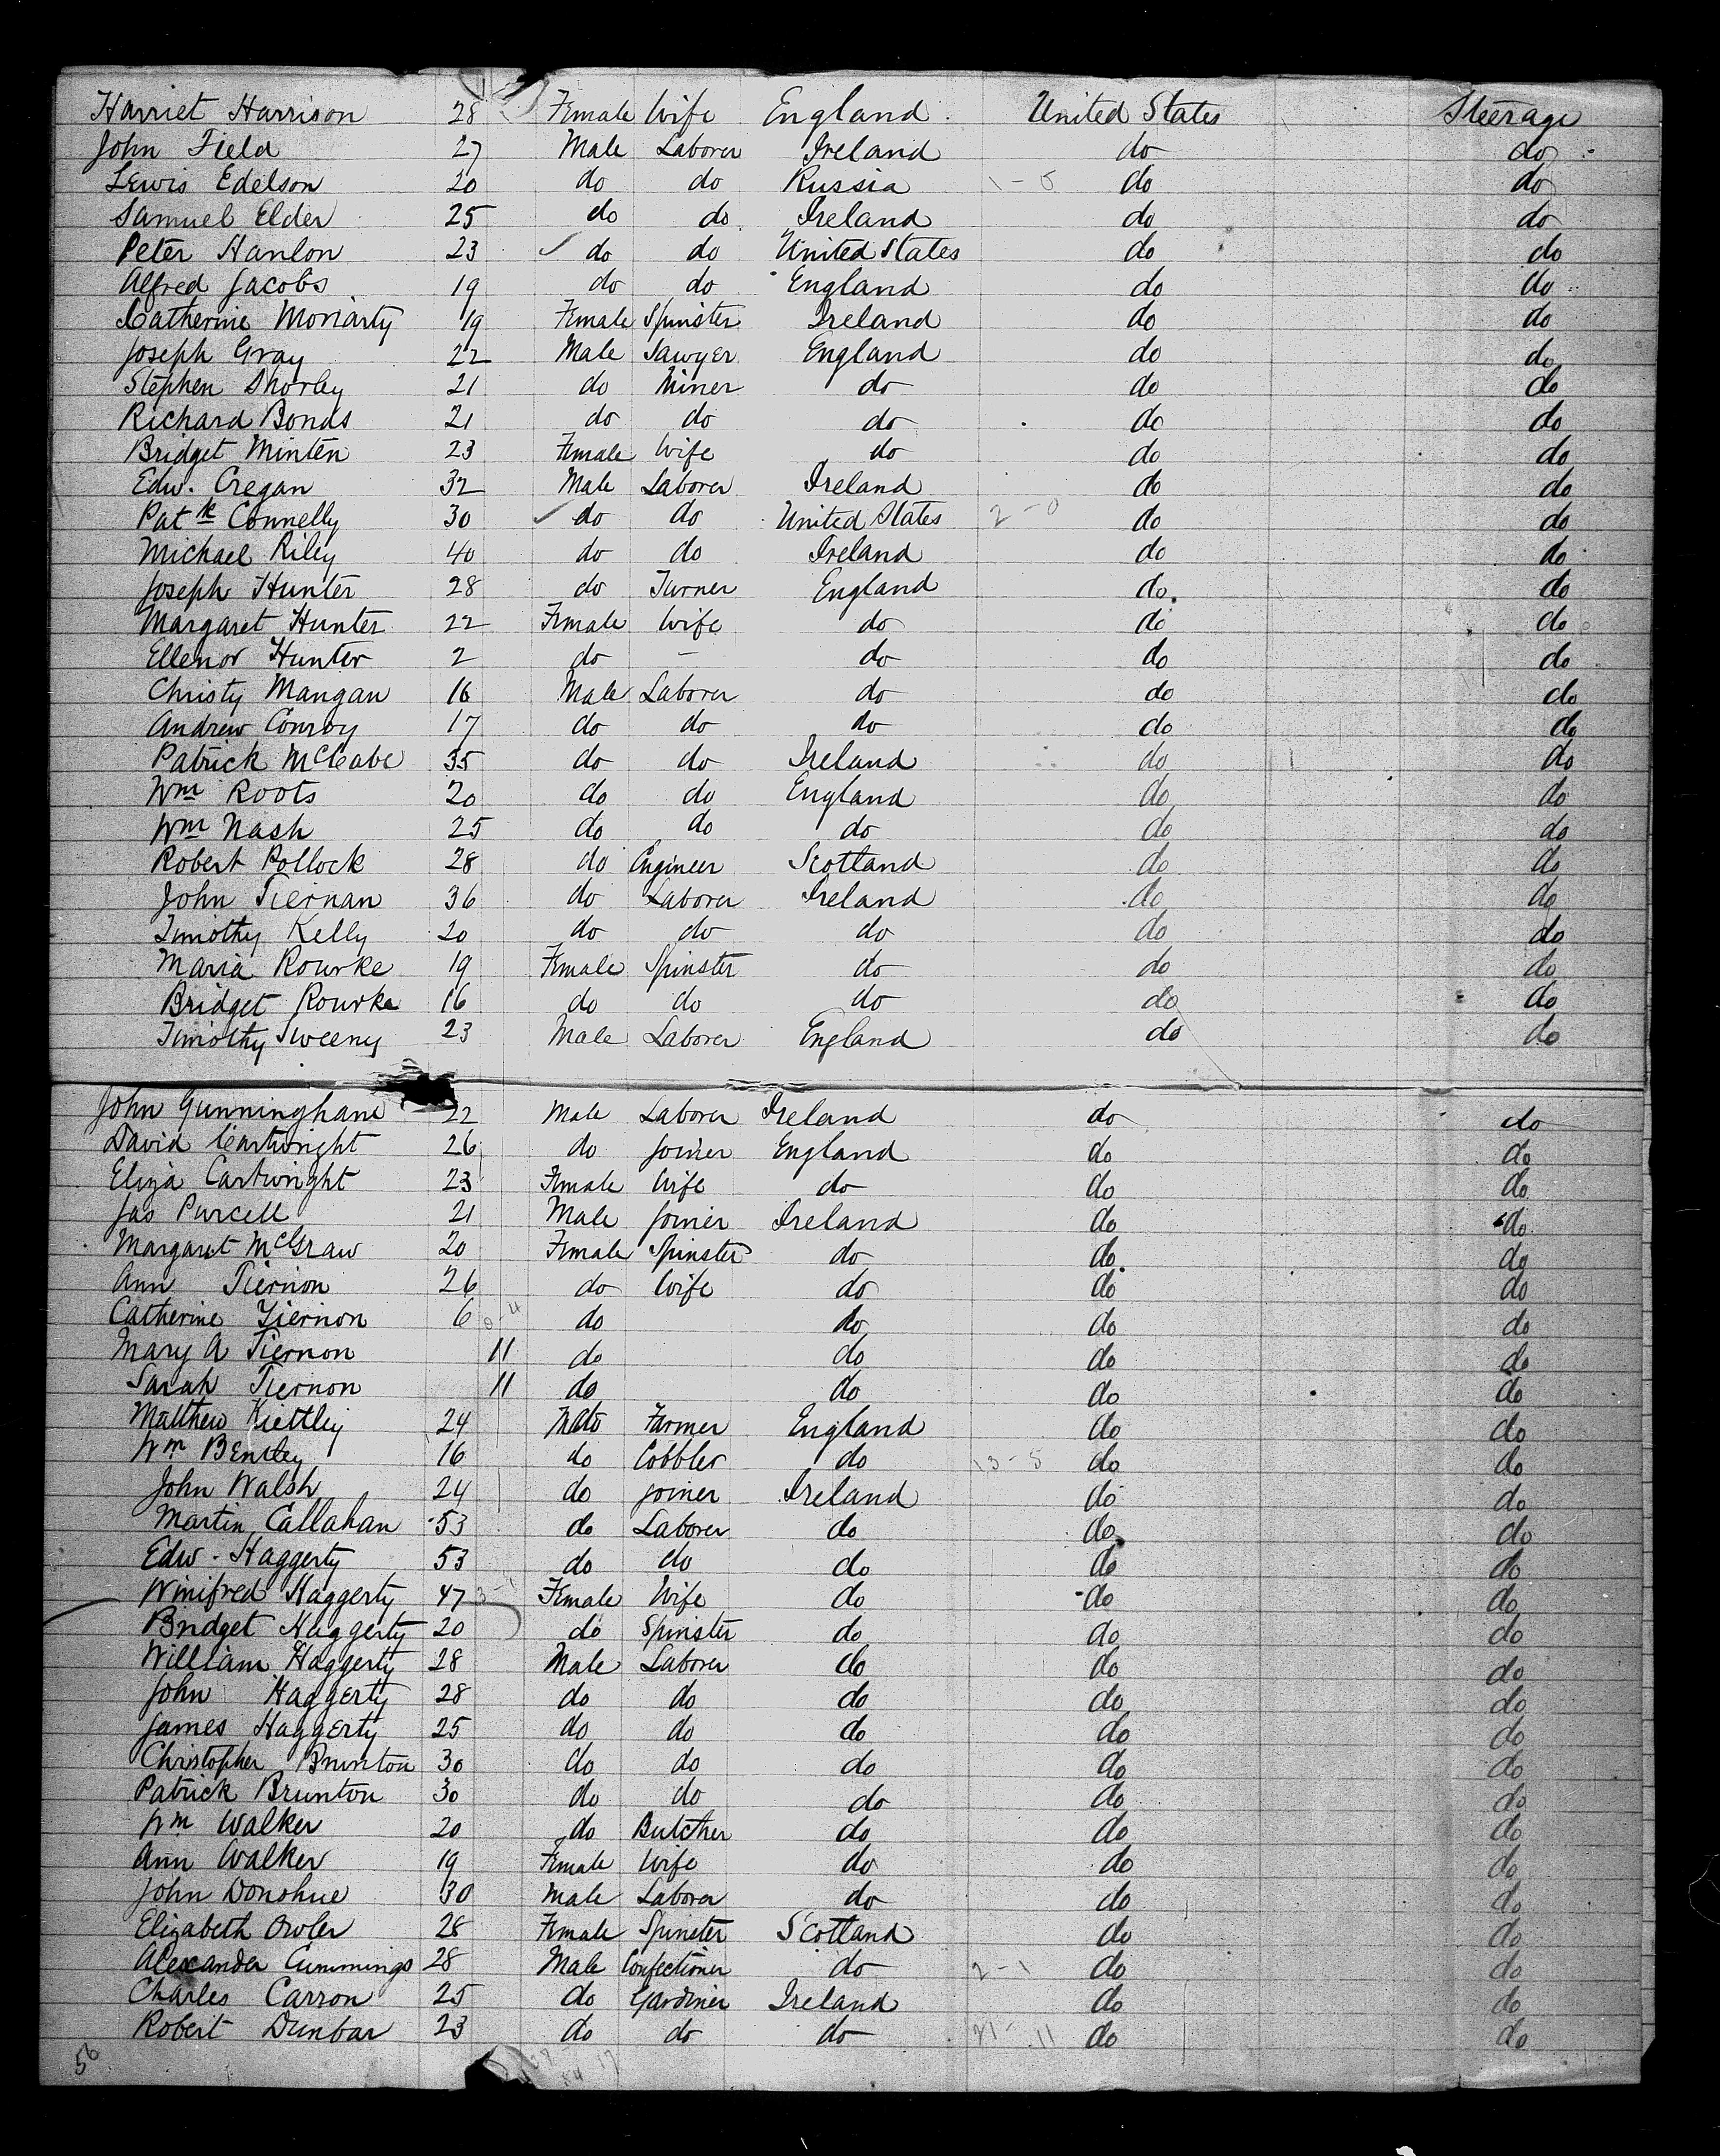 Harriet Harrison 28 Female Wife England United States Steerage
John Field 27 Male Laborer Ireland do do
Lewis Edelson 20 do do Russia 1-0 do do
Samuel Elder 25 do do Ireland do do
Peter Hanlon 23 ✓ do do United States do do
Alfred Jacobs 19 do do England do do
Catherine Moriarty 19 Female Spinster Ireland do do
Joseph Gray 22 Male Sawyer England do do
Stephen Shorley 21 do Miner do do do
Richard Bonds 21 do do do do do
Bridget Minten 23 Female Wife do do do
Edw. Cregan 32 Male Laborer Ireland do do
Patk Connelly 30 ✓ do do United States 2-0 do do
Michael Riley 40 do do Ireland do do
Joseph Hunter 28 do Turner England do do
Margaret Hunter 22 Female Wife do do do
Ellenor Hunter 2 do - do do do
Christy Mangan 16 Male Laborer do do do
Andrew Conroy 17 do do do do do
Patrick McCabe 35 do do Ireland do do
Wm Roots 20 do do England do do
Wm Nash 25 do do do do do
Robert Pollock 28 do Engineer Scotland do do
John Tiernan 36 do Laborer Ireland do do
Timothy Kelly 20 do do do do do
Maria Rourke 19 Female Spinster do do do
Bridget Rourke 16 do do do do do
Timothy Sweeny 23 Male Laborer England do do
John Gunninghane 22 Male Laborer Ireland do do
David Cartwright 26 do Joiner England do do
Eliza Cartwright 23 Female Wife do do do
Jas Purcell 21 Male Joiner Ireland do do
Margaret McGraw 20 Female Spinster do do do
Ann Tiernon 26 do Wife do do do
Catherine Tiernon 6 do do do do
Mary A Tiernon 11 do do do do
Sarah Tiernon 11 do do do do
Matthew Kiettley 24 Male Farmer England do do
Wm Bensley 16 do Cobbler do 13-5 do do
John Walsh 24 do Joiner Ireland do do
Martin Callahan 53 do Laborer do do do
Edw. Haggerty 53 do do do do do
Winifred Haggerty 47 Female Wife do do do
Bridget Haggerty 20 do Spinster do do do
William Haggerty 28 Male Laborer do do do
John Haggerty 28 do do do do do
James Haggerty 25 do do do do do
Christopher Brunton 30 do do do do do
Patrick Brunton 30 do do do do do
Wm Walker 20 do Butcher do do do
Ann Walker 19 Female Wife do do do
John Donohue 30 Male Laborer do do do
Elizabeth Owler 28 Female Spinster Scotland do do
Alexander Cummings 28 Male Confectioner do 2-1 do do
Charles Carron 25 do Gardiner Ireland do do
Robert Dunbar 23 do do do 21-11 do do
56